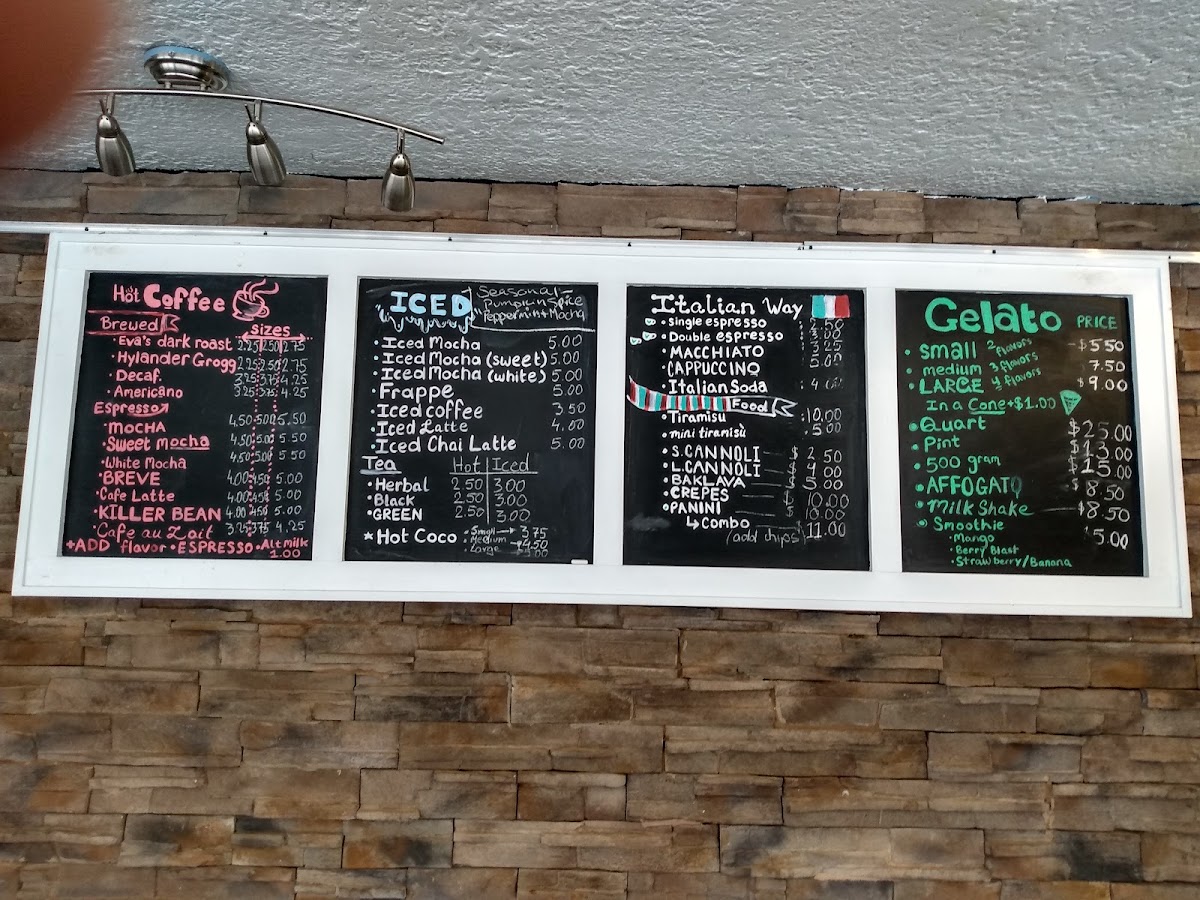 Hot Coffee
Brewed
Sizes
Eva's dark roast 2.25 2.50 2.75
Hylander Grogg 2.25 2.50 2.75
Decaf. 3.25 3.75 4.25
Americano 3.25 3.75 4.25
Espresso
MOCHA 4.50 5.00 5.50
Sweet mocha 4.50 5.00 5.50
White Mocha 4.50 5.00 5.50
BREVE 4.00 4.50 5.00
Cafe Latte 4.00 4.50 5.00
KILLER BEAN 4.00 4.50 5.00
Cafe au Lait 3.25 3.75 4.25
+ADD flavor • ESPRESSO • Alt milk
1.00
ICED
Seasonal-
Pumpkin Spice
Peppermint Mocha
Iced Mocha 5.00
Iced Mocha (sweet) 5.00
Iced Mocha (white) 5.00
Frappe 5.00
Iced coffee 3.50
Iced Latte
Iced Chai Latte 5.00
Tea Hot Iced
Herbal 2.50 3.00
Black 2.50 3.00
GREEN 2.50 3.00
* Hot Coco
Small 3.75
Medium 4.50
Large
Italian Way
Single espresso
Double espresso
MACCHIATO 3.25
CAPPUCCINO
Italian Soda
Food
Tiramisu 10.00
mini tiramisù 5.00
S. CANNOLI $ 2.50
L. CANNOLI $ 4.00
BAKLAVA 5.00
CREPES 10.00
PANINI
Combo $11.00
(add chips)
Gelato PRICE
small 2 flavors $5.50
medium 3 flavors 7.50
LARGE 4 flavors $9.00
In a Cone +$1.00
Quart $25.00
Pint
500 gram $15.00
AFFOGATO $8.50
Milk Shake $8.50
Smoothie $5.00
Mango
Berry Blast
Strawberry/Banana